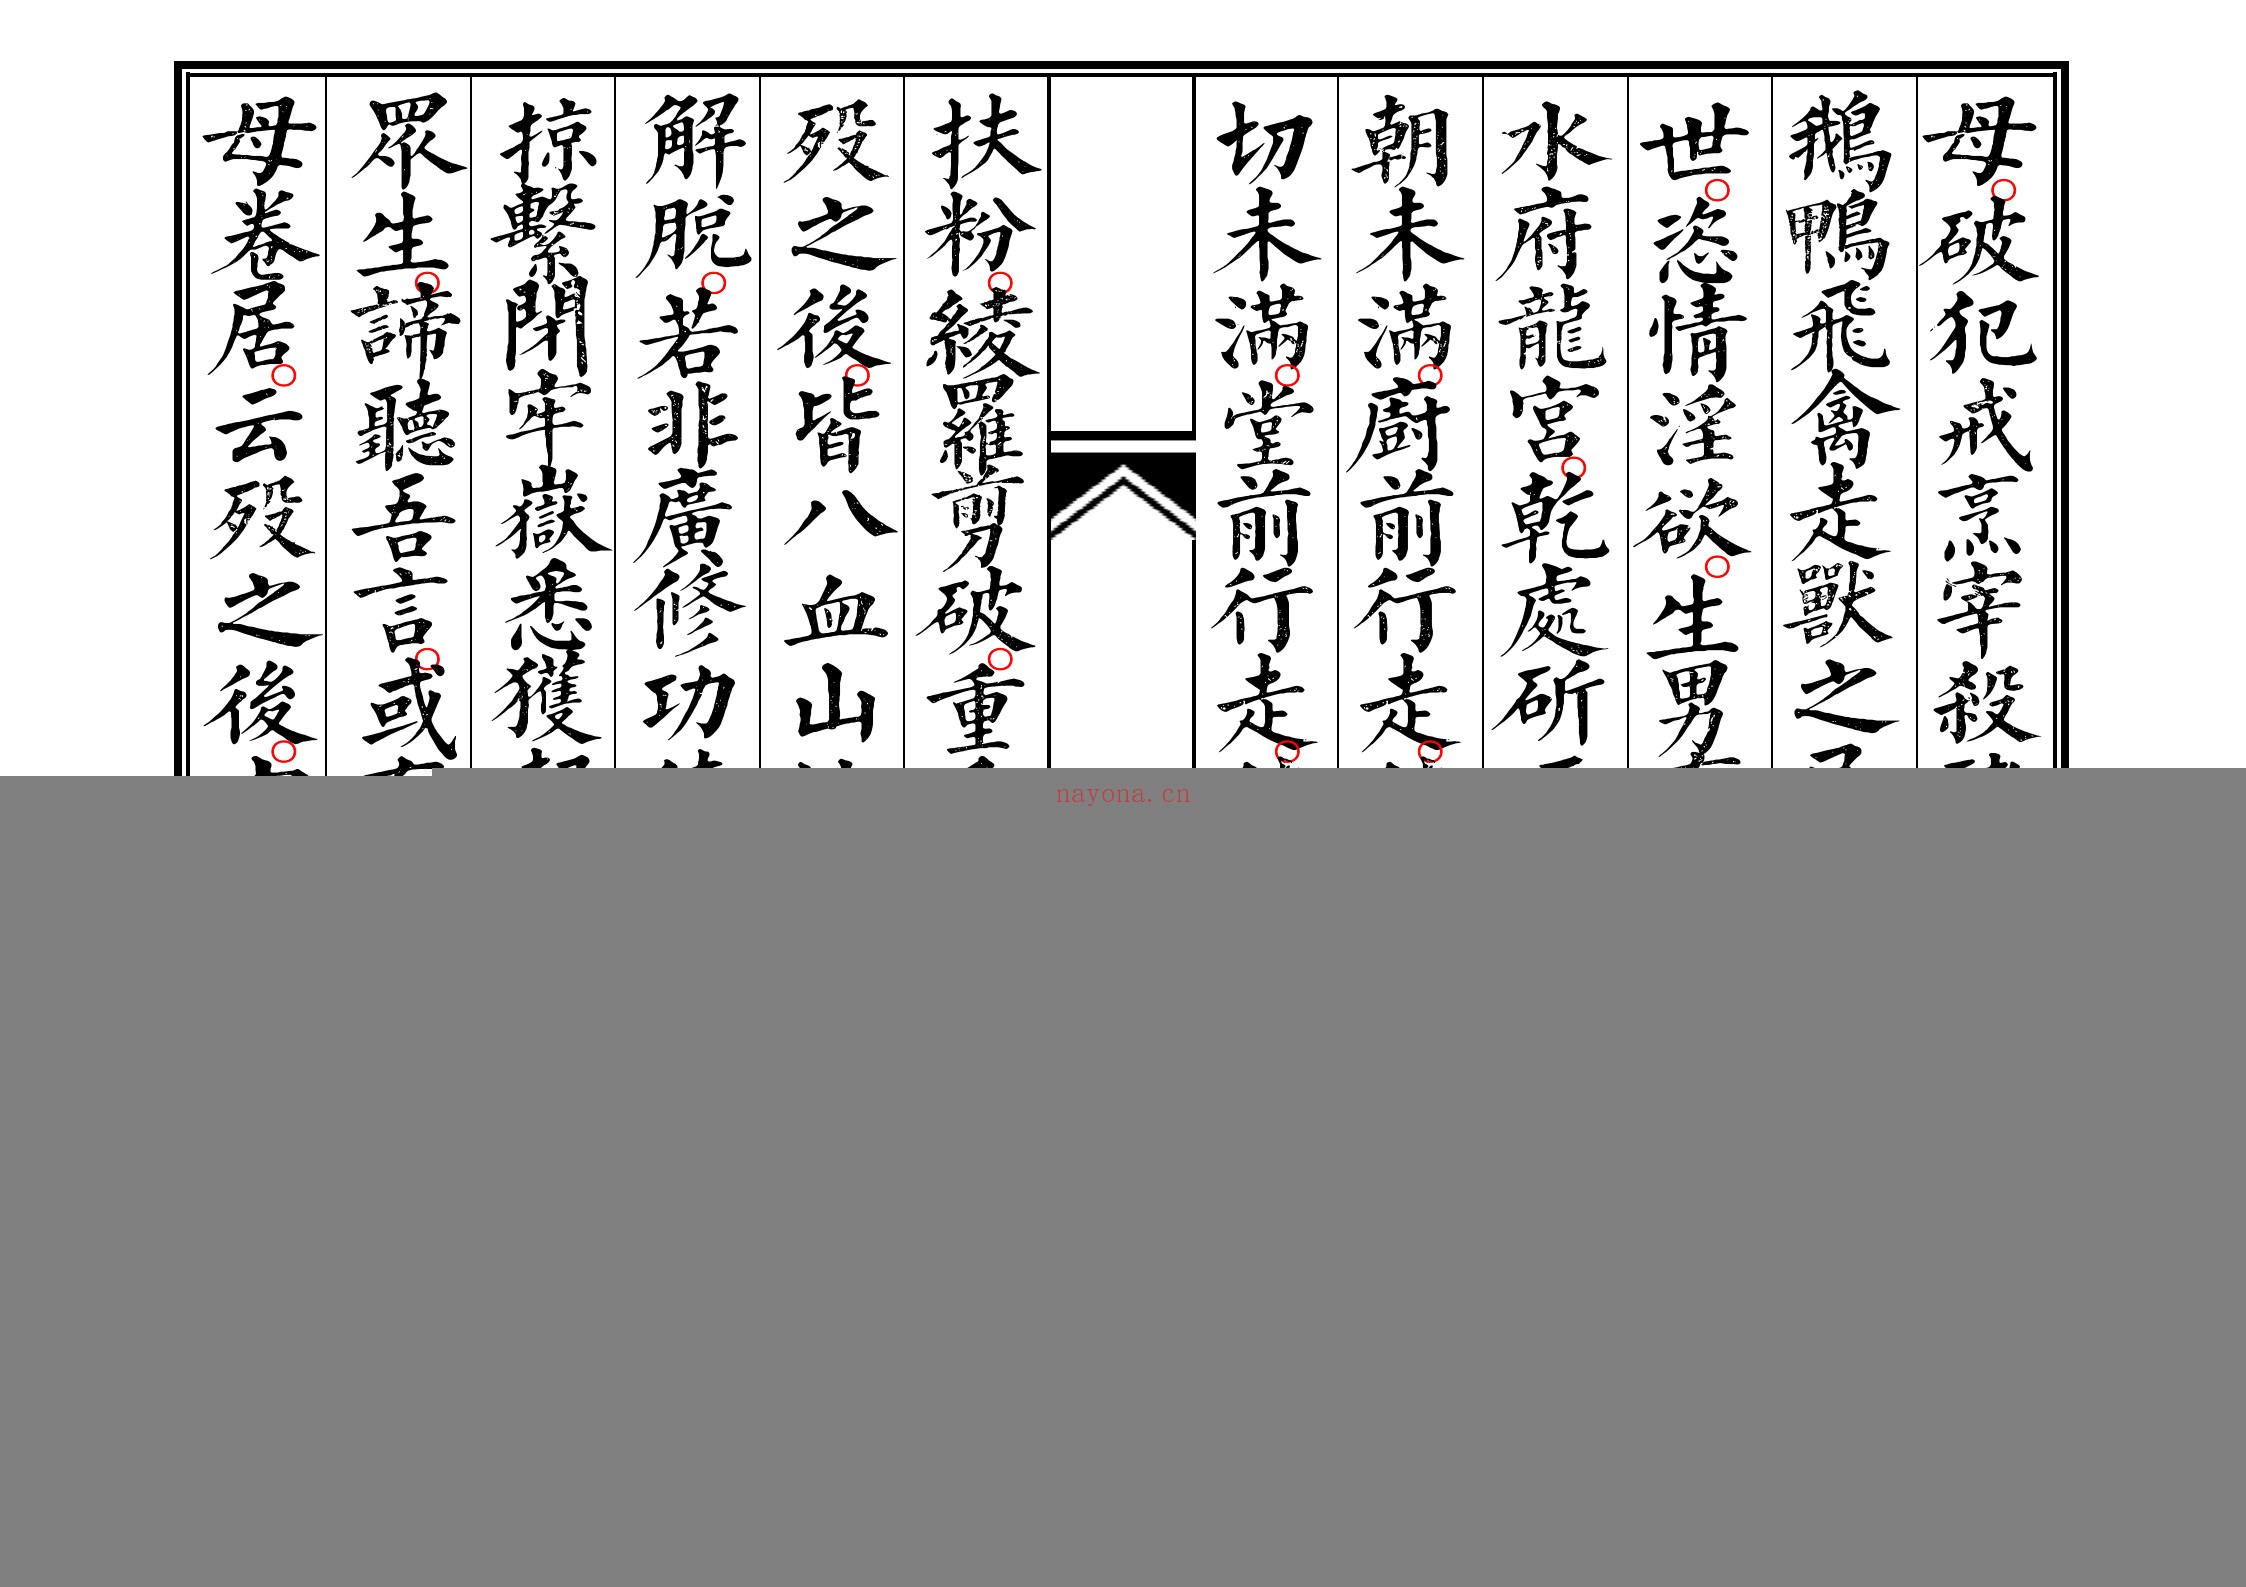 母○破犯戒烹宰殺
鵝鴨飛禽走獸之
世○恣情淫欲○生男
水府龍宮○乾處斫
朝未滿○廚前行走○
切未滿○堂前行走○
扶粉○綾羅剪破○重
歿之後○皆八血山
解脫○若非廣修功
掠繫閉牢嶽悉獲
眾生○諦聽吾言○或
母卷居○云歿之後○
nayona.cn